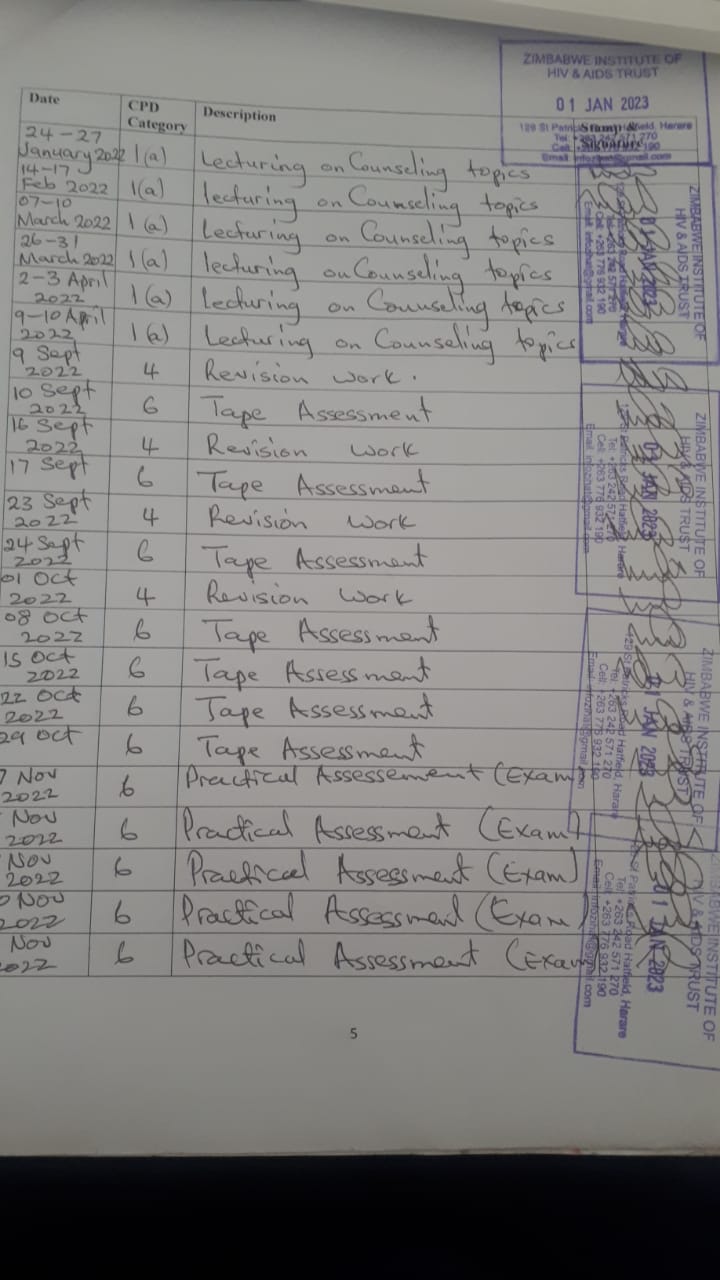 ZIMBABWE INSTITUTE OF
HIV & AIDS TRUST
01 JAN 2023
Date CPD Category Description Stamp & Signature
24-27 January 2022 1(a) Lecturing on Counseling topics
14-17 Feb 2022 1(a) lecturing on Counseling topics
07-10 March 2022 1(a) Lecturing on Counseling topics
26-31 March 2022 1(a) lecturing on Counseling topics
2-3 April 2022 1(a) Lecturing on Counseling topics
9-10 April 2022 1(a) Lecturing on Counseling topics
9 Sept 2022 4 Revision work.
10 Sept 2022 6 Tape Assessment
16 Sept 2022 4 Revision Work
17 Sept 6 Tape Assessment
23 Sept 2022 4 Revision Work
24 Sept 2022 6 Tape Assessment
01 Oct 2022 4 Revision Work
08 Oct 2022 6 Tape Assessment
15 Oct 2022 6 Tape Assessment
22 Oct 2022 6 Tape Assessment
29 Oct 6 Tape Assessment
7 Nov 2022 6 Practical Assessement (Exam)
Nov 2022 6 Practical Assessment (Exam)
Nov 2022 6 Practical Assessment (Exam)
Nov 2022 6 Practical Assessment (Exam
Nov 2022 6 Practical Assessment (Exam
ZIMBABWE INSTITUTE OF
HIV & AIDS TRUST
01 JAN 2023
ZIMBABWE INSTITUTE OF
HIV & AIDS TRUST
01 JAN 2023
129 St Patricks Road Hatfield, Harare
Tel: +263 242 571 270
Cell: +263 776 932 190
Email: infozihat@gmail.com
ZIMBABWE INSTITUTE OF
HIV & AIDS TRUST
01 JAN 2023
129 St Patricks Road Hatfield, Harare
Tel: +263 242 571 270
Cell: +263 776 932 190
ZIMBABWE INSTITUTE OF
HIV & AIDS TRUST
01 JAN 2023
St Patricks Road Hatfield, Harare
Tel: +263 242 571 270
Cell: +263 776 932 190
5